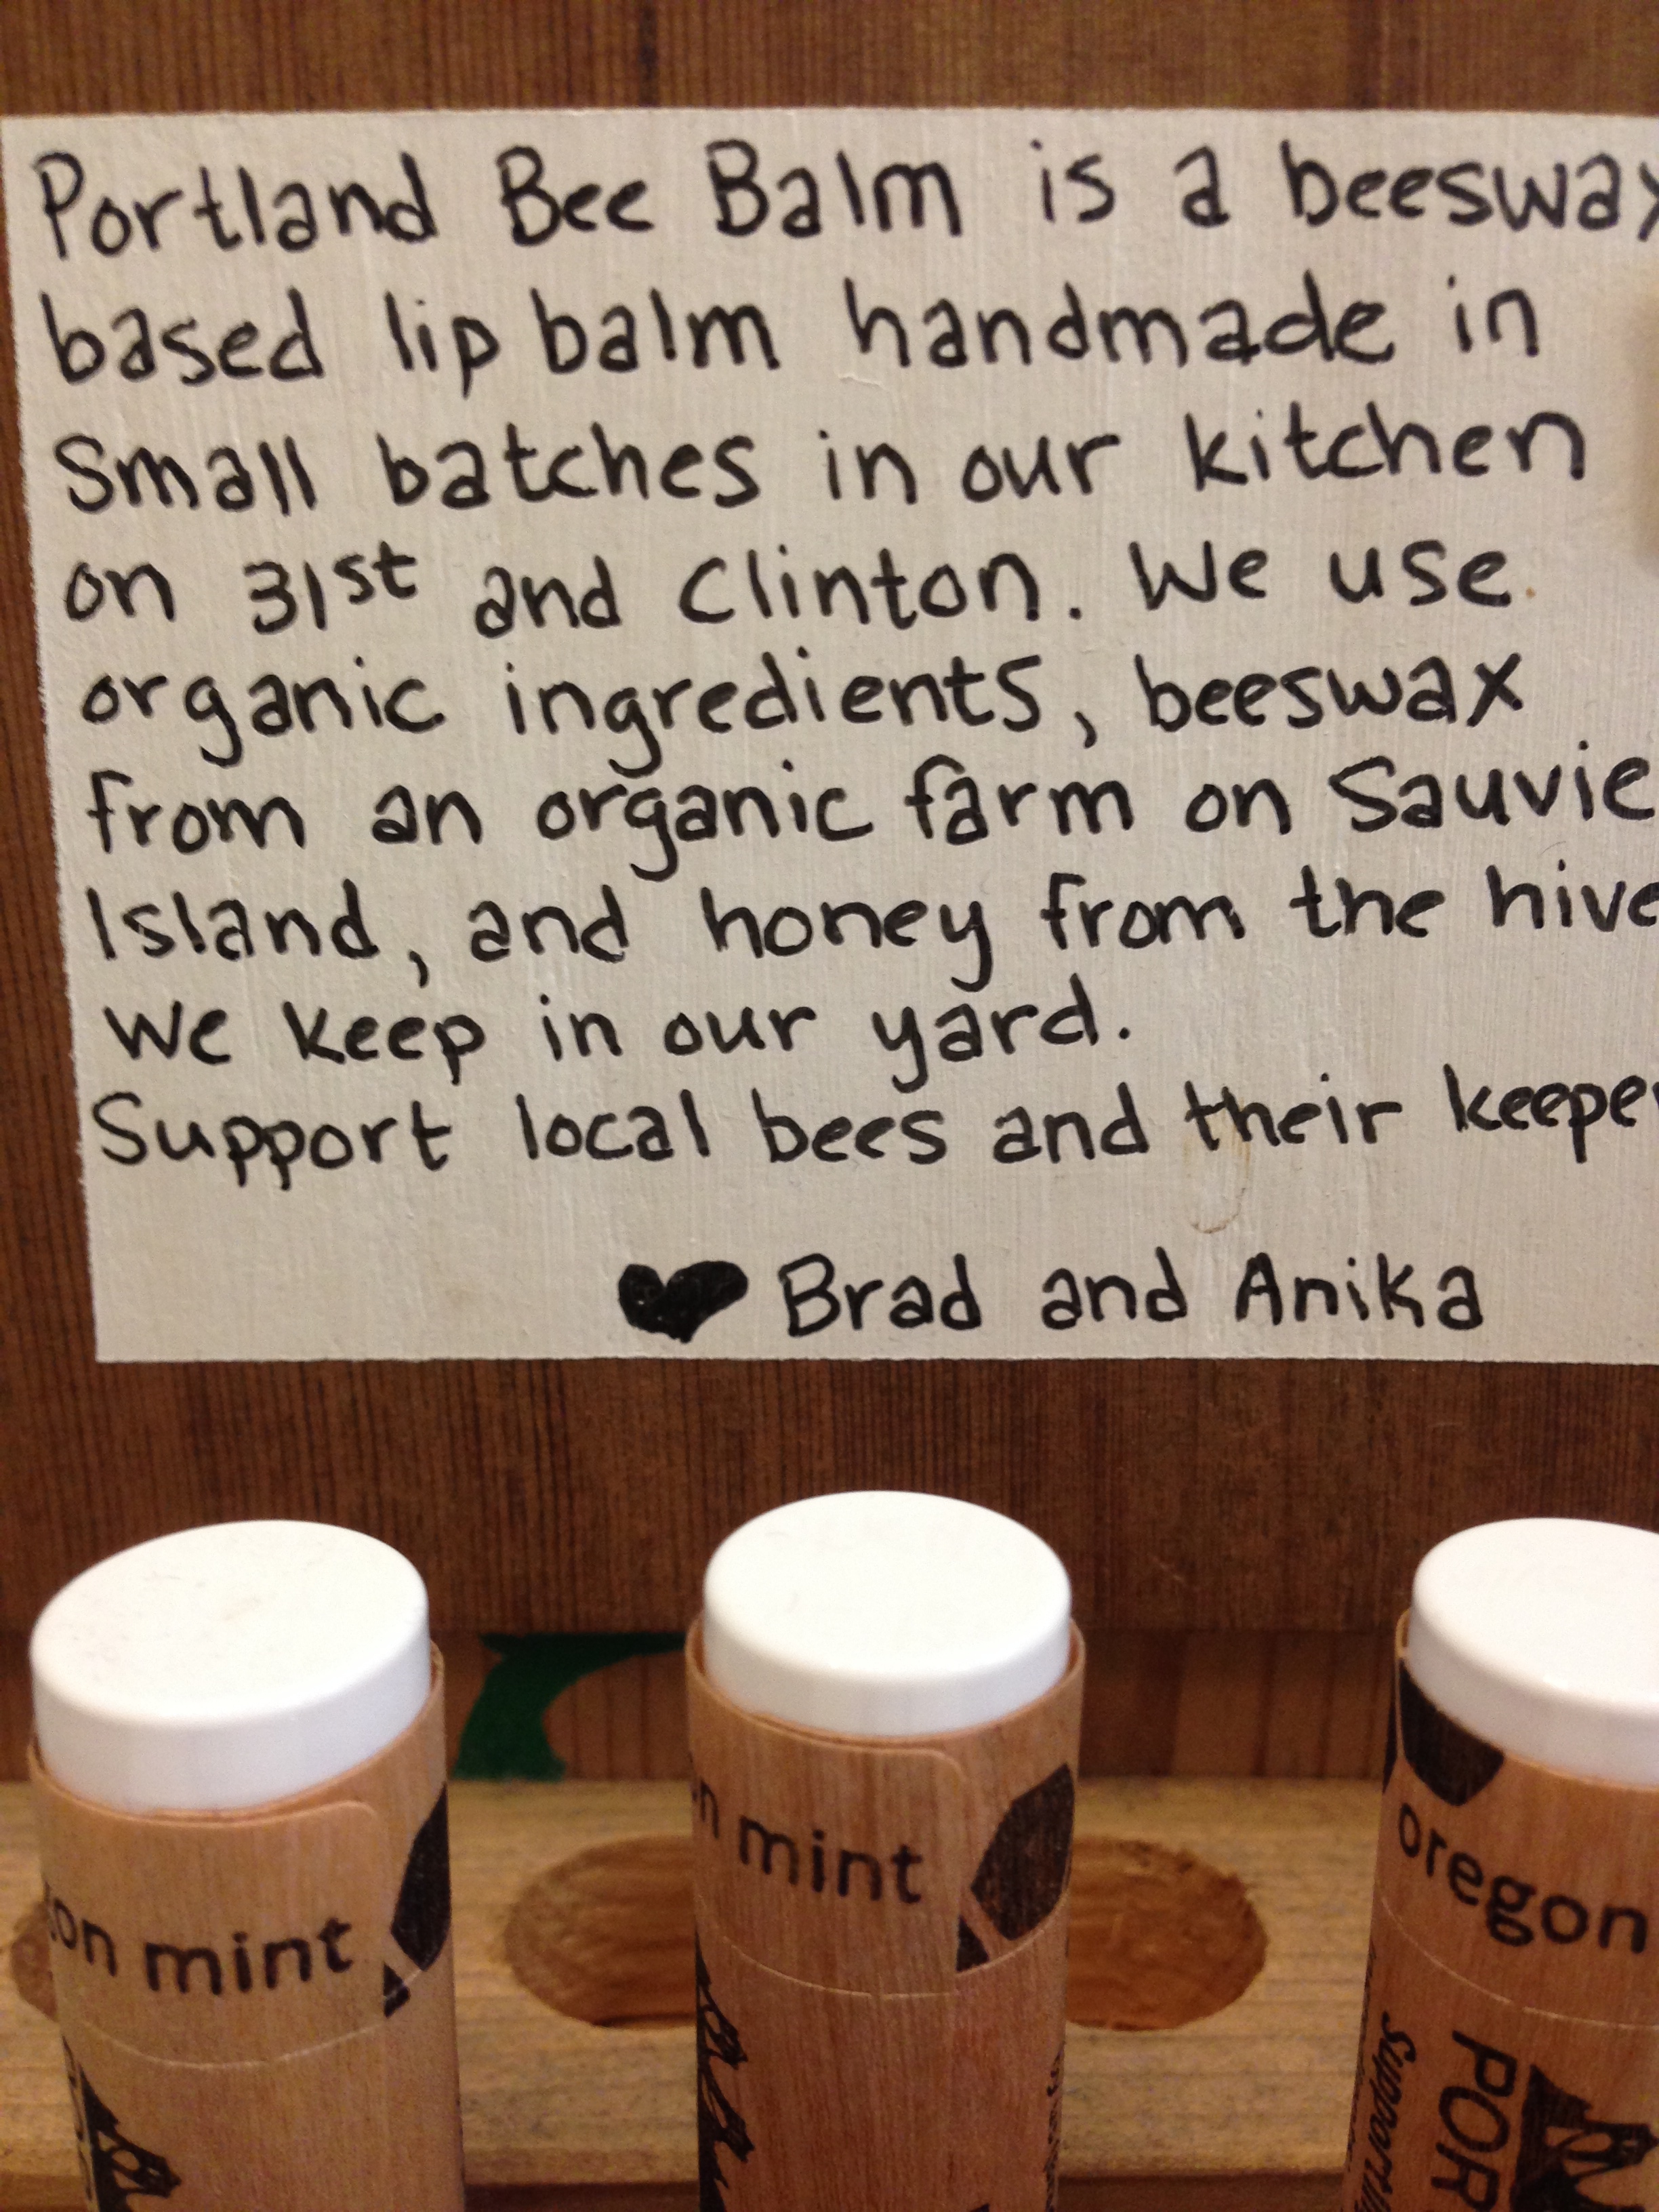 Portland Bee Balm is a beeswax
based lip balm handmade in
Small batches in our kitchen
on 31st and Clinton. We use
organic ingredients, beeswax
from an organic farm on Sauvie
Island, and honey from the hive
We keep in our yard.
Support local bees and their keeper
♥ Brad and Anika
on mint
n mint
oregon
Support
POR